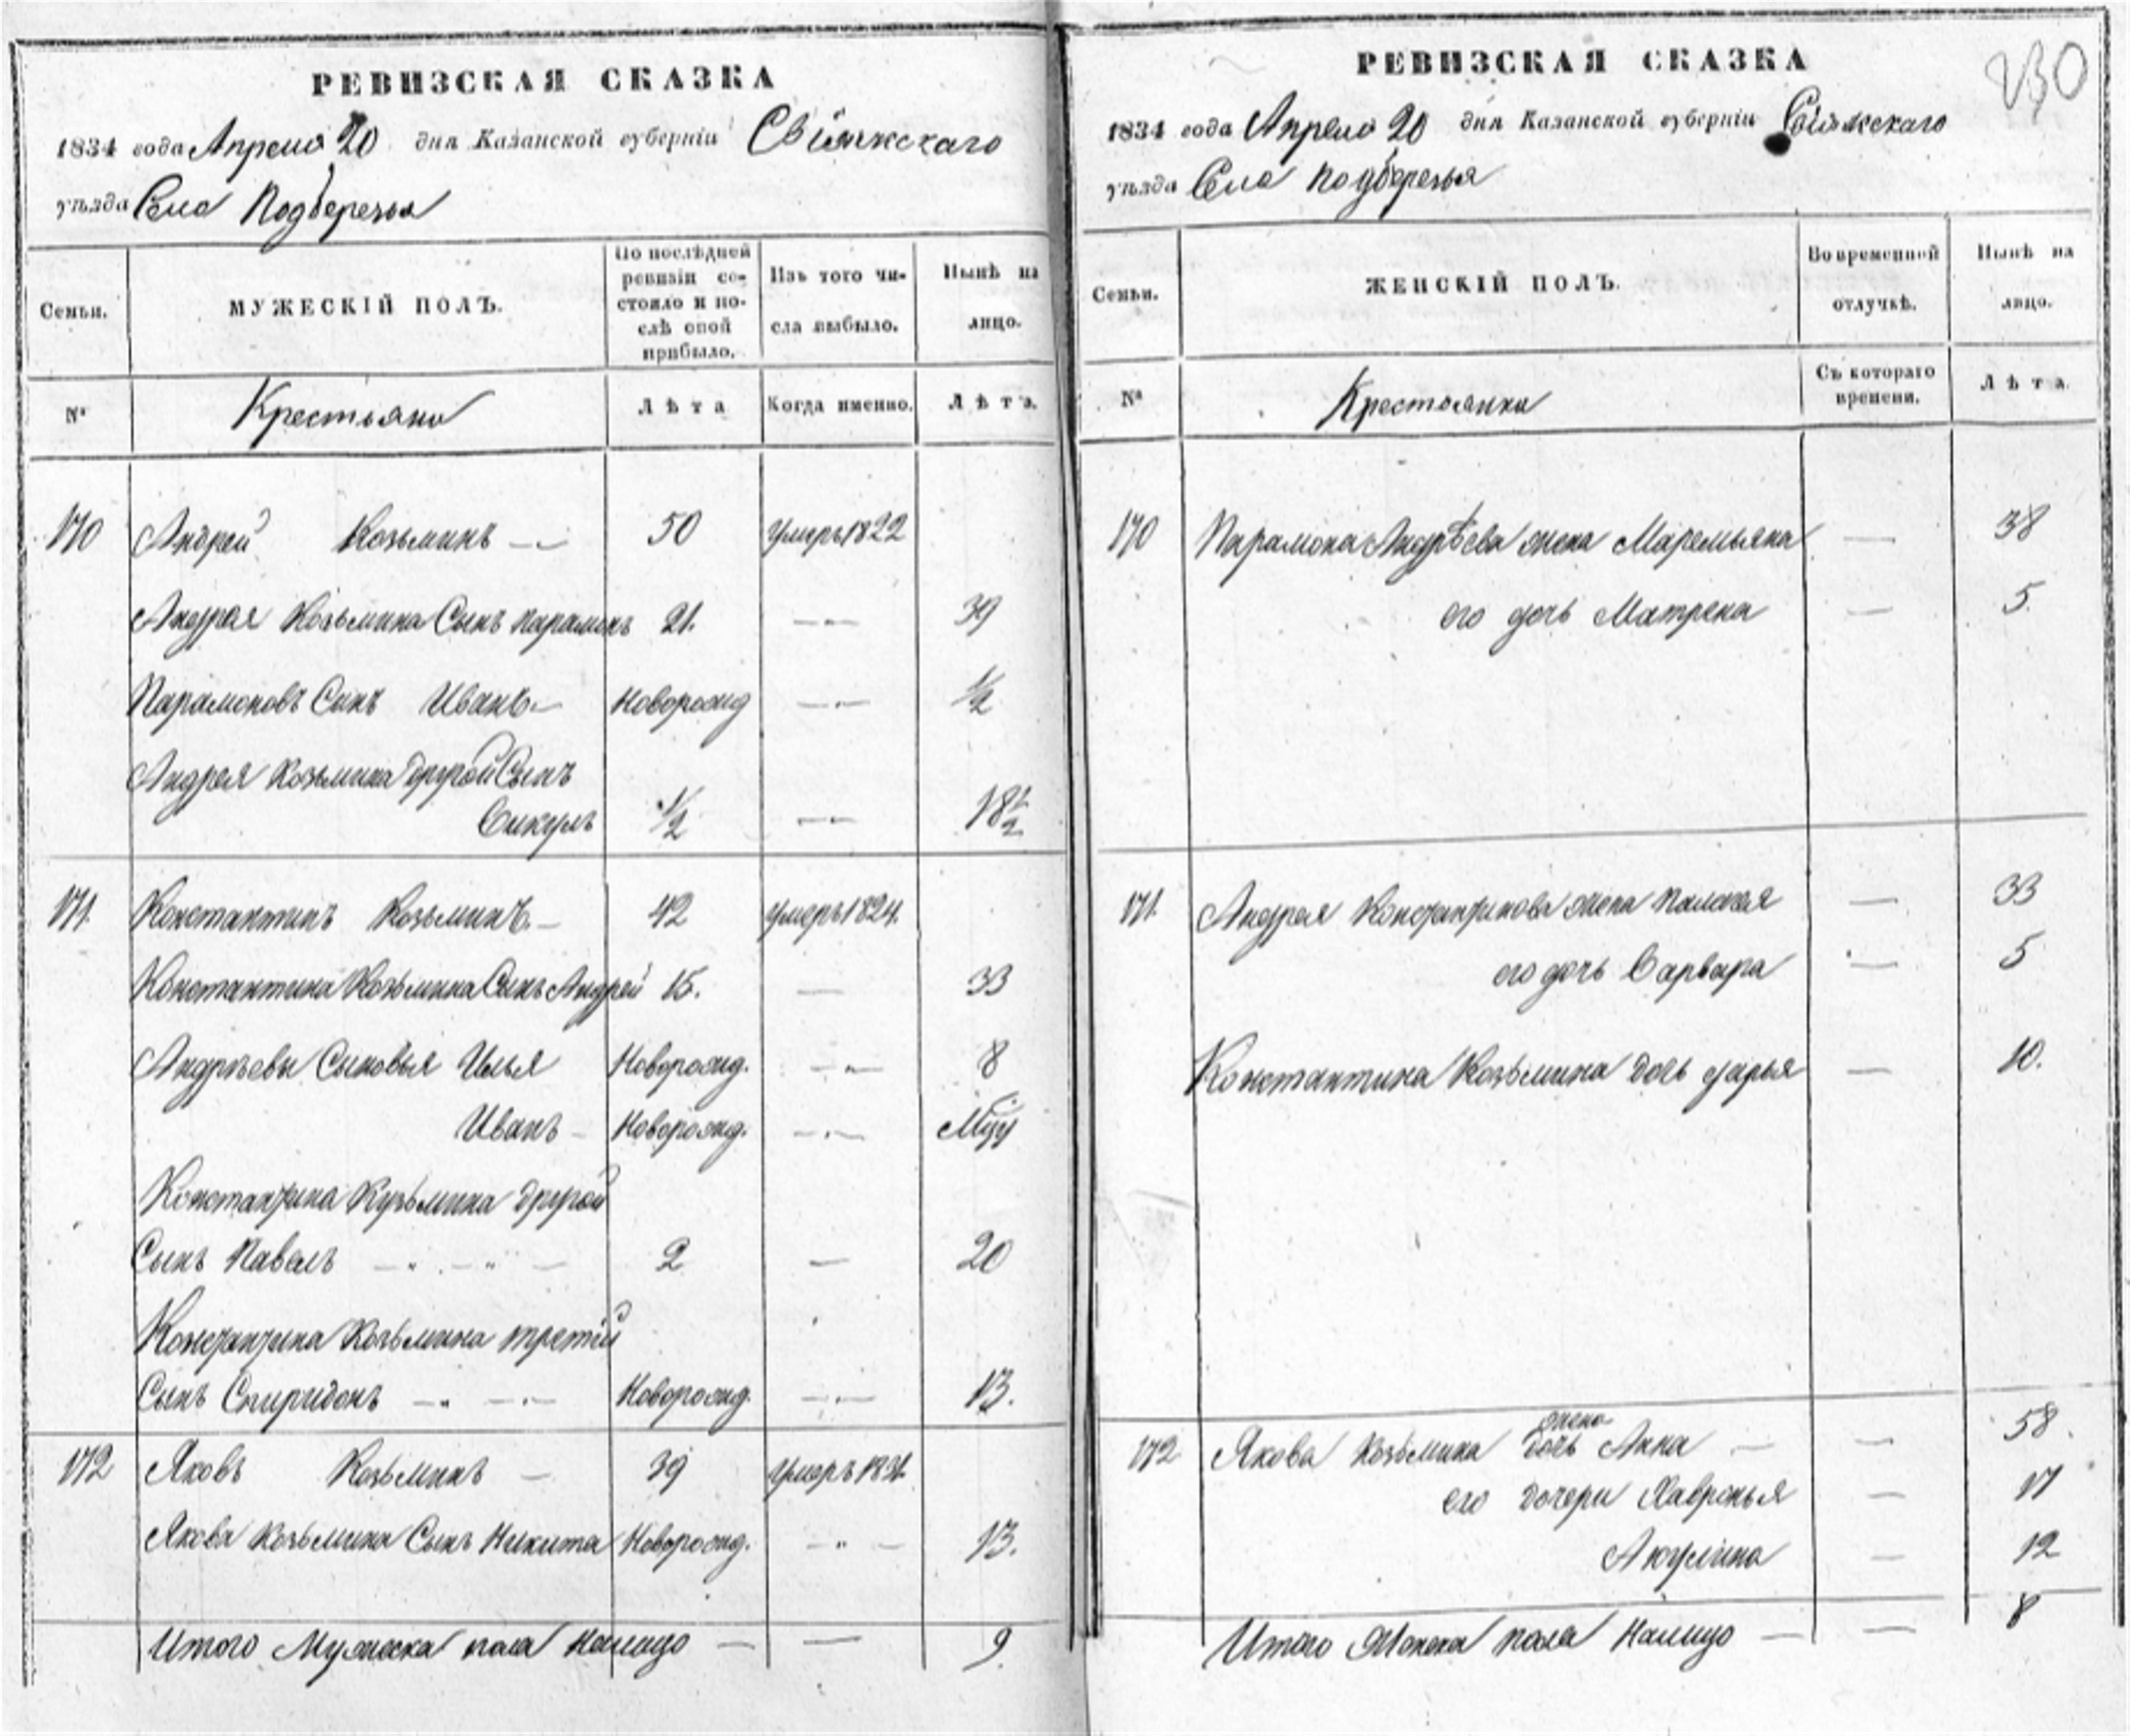 РЕВИЗСКАЯ СКАЗКА
1834 года Апреля 20 дня Казанской губерніи Свіяжскаго
уѣзда Села Подберезья
Семьи.
МУЖЕСКІЙ ПОЛЪ.
По послѣдней
ревизіи со-
стояло и по-
слѣ оной
прибыло.
Изъ того чи-
сла выбыло.
Нынѣ на
лицо.
№
Крестьяне
Лѣта
Когда именно.
Лѣта.
170 Андрей Козьминъ 50 умеръ 1822
Андрея Козьмина Сынъ Парамонъ 21. 39
Парамоновъ Сынъ Иванъ Новорожд 1/2
Андрея Козьмина другой Сынъ
1/2 18 1/2
171 Константинъ Козьминъ 42 умеръ 1824.
Константина Козьмина Сынъ Андрей 15. 33
Андрѣевы Сыновья Илья Новорожд. 8
Иванъ Новорожд.
Константина Кузьмина другой
Сынъ Павелъ 2 20
Константина Козьмина третій
Сынъ Спиридонъ Новорожд. 13.
172 Яковъ Козьминъ 39 умеръ 1831
Якова Козьмина Сынъ Никита Новорожд. 13.
Итого Мужеска пола налицо 9.
230
РЕВИЗСКАЯ СКАЗКА
1834 года Апреля 20 дня Казанской губерніи Свіяжскаго
уѣзда Села Подберезья
Семьи.
ЖЕНСКІЙ ПОЛЪ.
Во временной
отлучкѣ.
Нынѣ на
лицо.
№
Крестьянки
Съ котораго
времени.
Лѣта.
170 Парамона Андрѣева жена Маремьяна 38
его дочь Матрена 5.
171 Андрея Константинова жена Пелагея 33
его дочь Варвара 5
Константина Козьмина дочь Дарья 10.
жена
172 Якова Козьмина дочь Анна 58.
его дочери Хавронья 17
Акулина 12
Итого Женска пола налицо 8